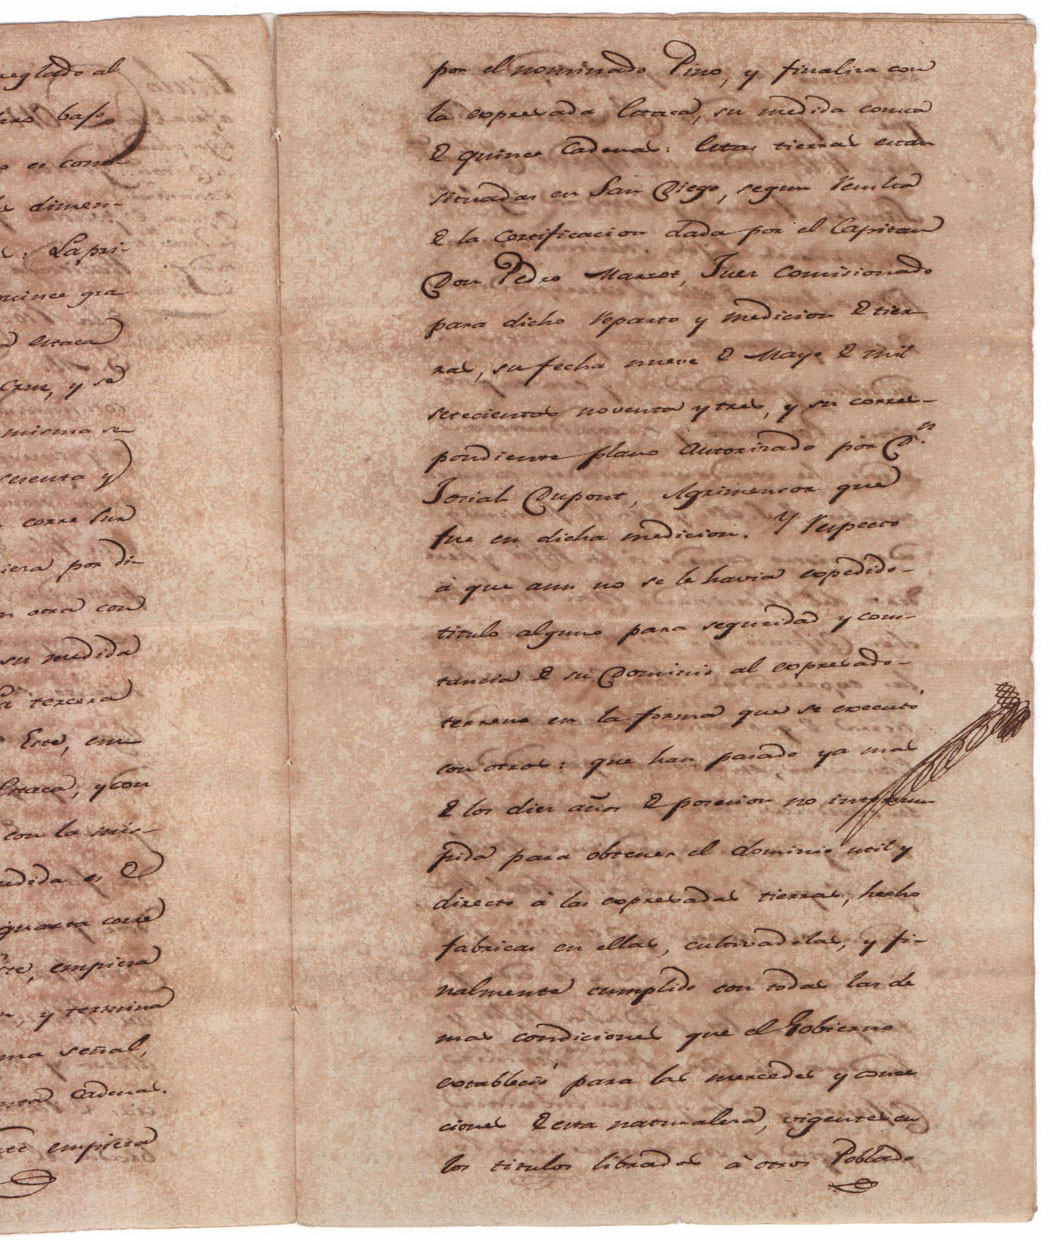 reglado al
bajo
es corre
dimen-
: La pri-
quince gra
estaca
Cruz, y se
misma se
cuenta y
corre Sur
piera por di-
n otra con
su medida
La tercera
Este, em-
Estaca, y con
con la mis-
medida es de
quarta corre
empieza
y termina
ma señal,
Cadenas.
empieza
por el nominado Pino, y finaliza con
la expresada Estaca, su medida consta
de quince Cadenas: Estas tierras estan
situadas en San Diego, segun resulta
de la Certificacion dada por el Capitan
Don Pedro Marrot, Juez Comisionado
para dicho reparto y medicion de tier-
ras, su fecha nueve de Mayo de mil
setecientos noventa y tres, y su corres-
pondiente plano autorizado por Dn.
Josiah Dupont, Agrimensor que
fue en dicha medicion. Y respecto
á que aun no se le havia expedido
titulo alguno para seguridad y cons-
tancia de su Dominio al expresado
terreno en la forma que se executó
con otros: que han pasado ya mas
de los diez años de posesion no interrum
pida para obtener el dominio util y
directo á las expresadas tierras, hecho
fabricas en ellas, cultivadolas, y fi-
nalmente cumplido con todas las de
mas condiciones que el Gobierno
estableció para las mercedes y conce
ciones de esta naturaleza, vigentes en
los titulos librados á otros Poblado